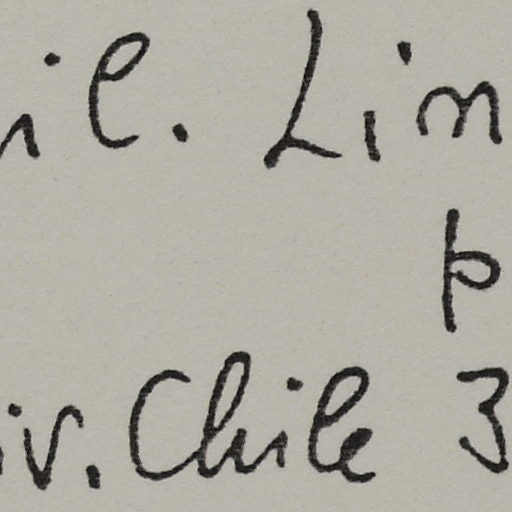 il. Lin
p
iv. Chile 3